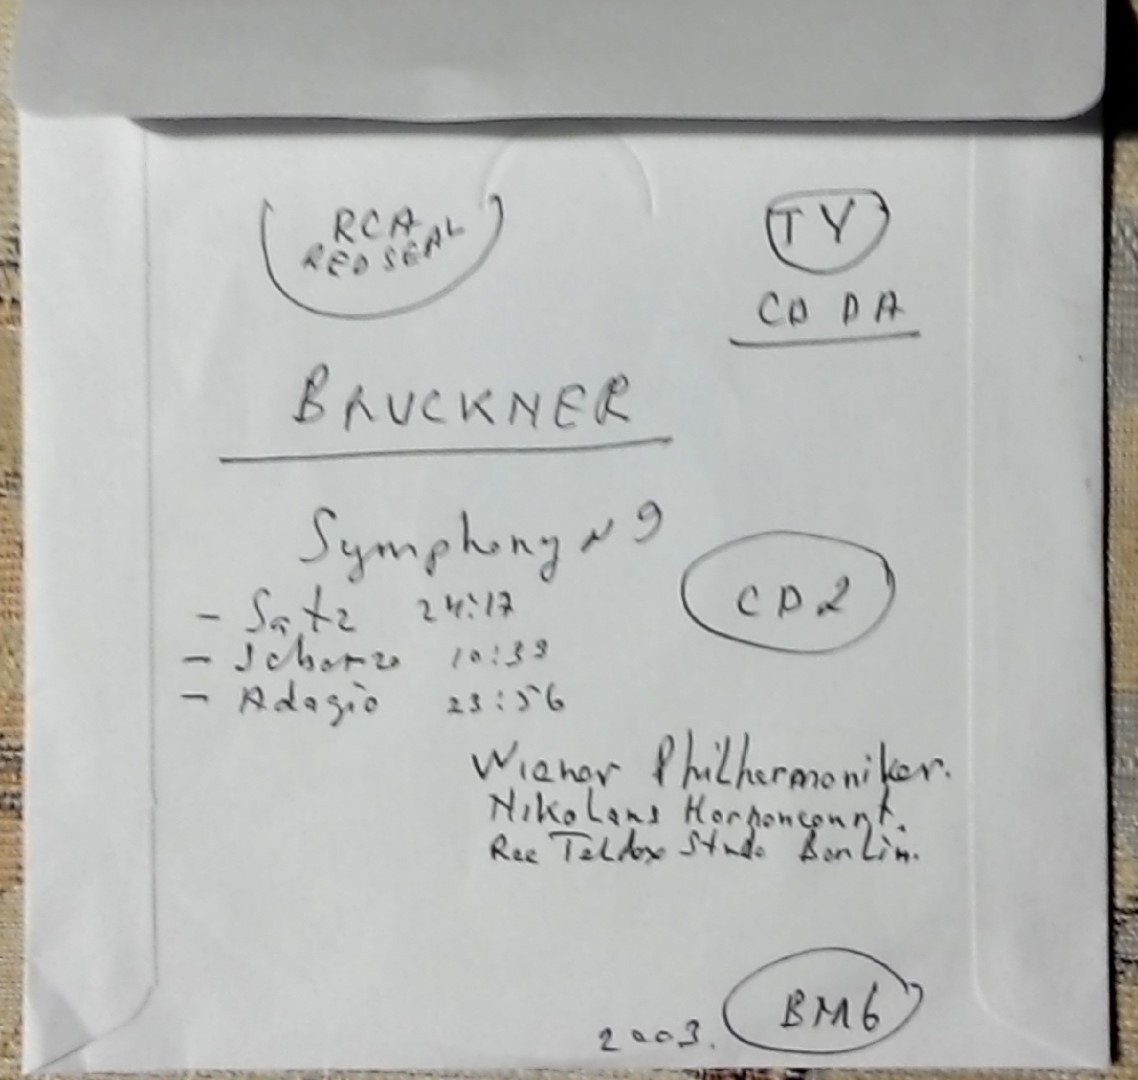 RCA
RED SEAL
TY
CD DA
BRUCKNER
Symphony N 9
CD2
- Satz 24:17
- Scherzo 10:39
- Adagio 23:56
Wiener Philhermoniker.
Nikolaus Harnoncourt.
Rec Teldex Studo Berlin.
BM6
2003.